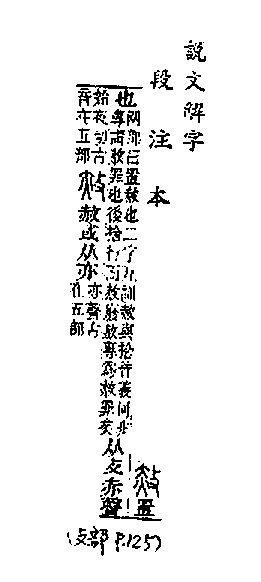 説文解字
段注本
赦置
也网部曰置赦也二字互訓赦與捨音義同非
專謂赦罪也後捨行而赦廢赦專爲赦罪矣从攴赤聲
始夜切古
音在五部
赦或从亦亦聲古
在五部
(攴部 P.125)